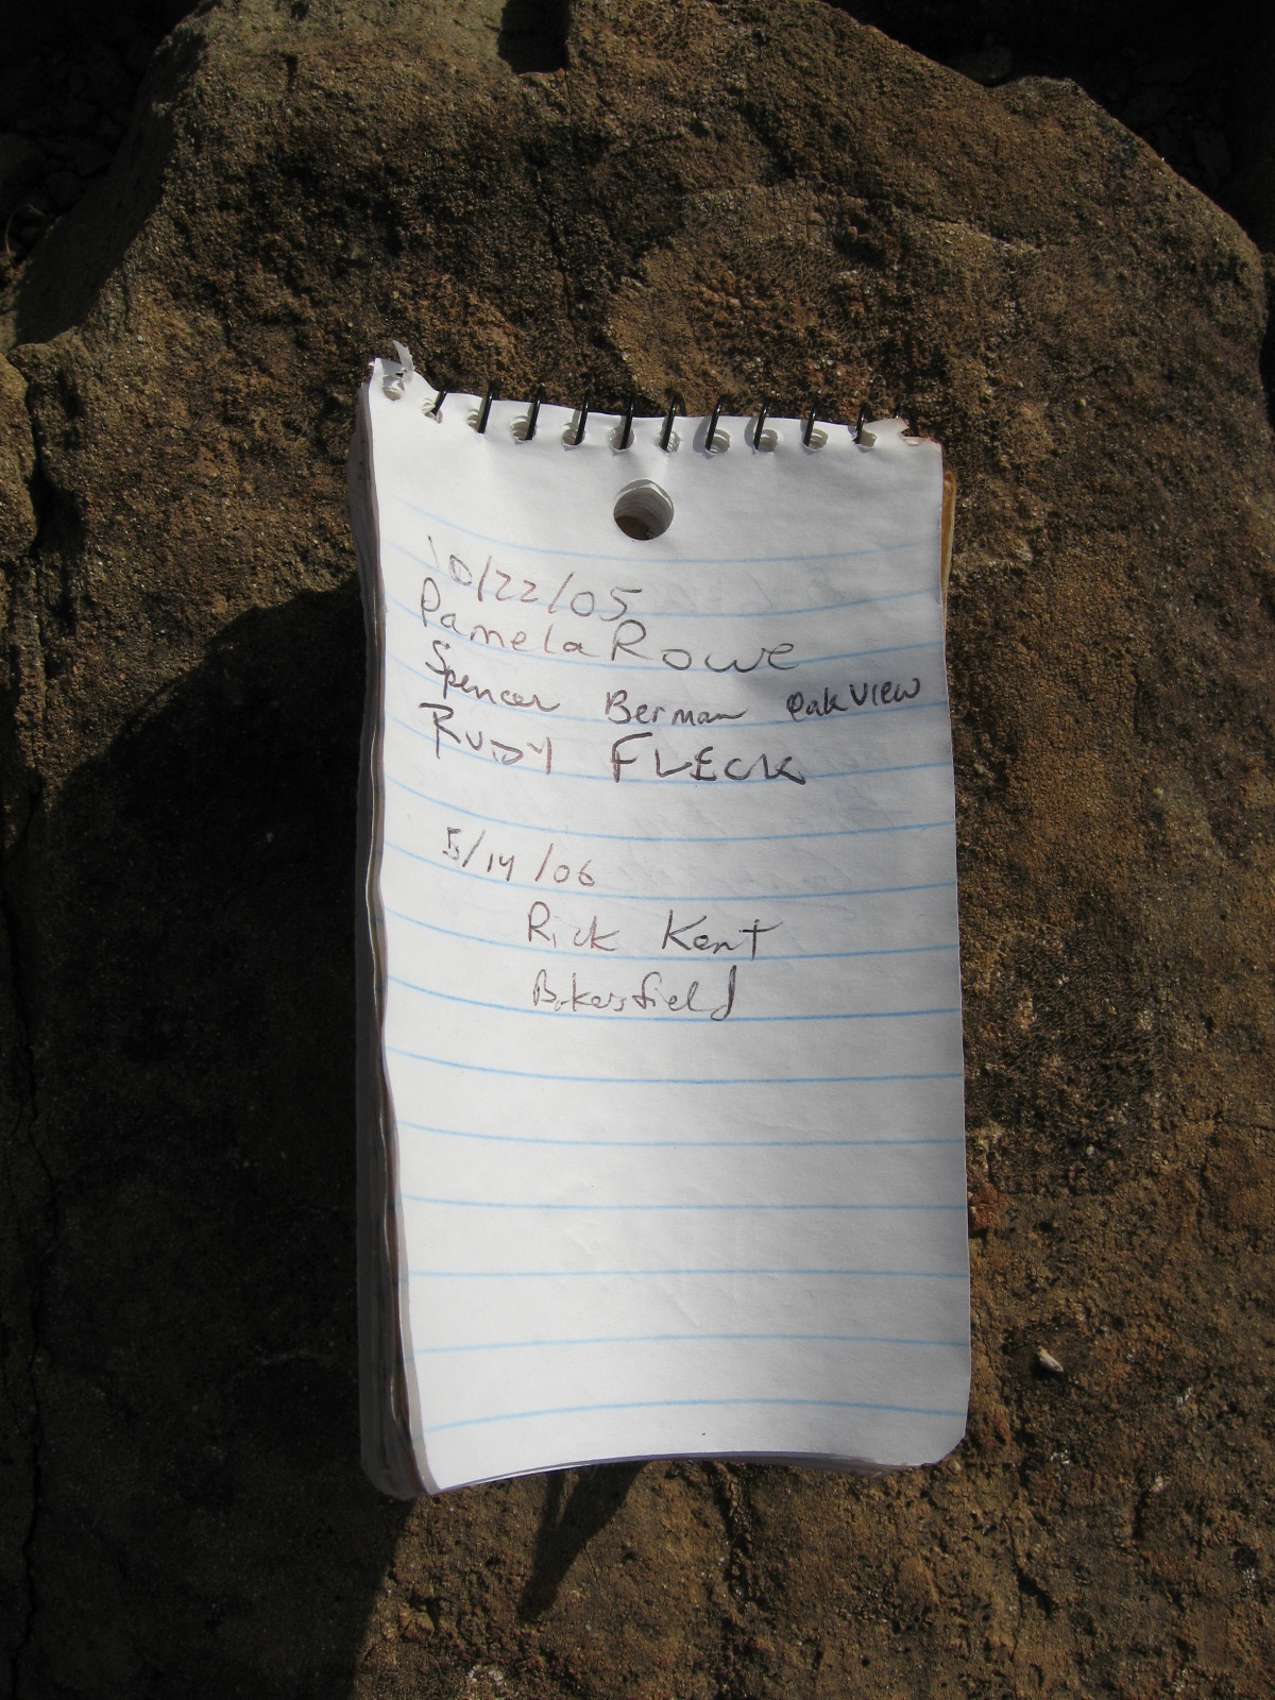 10/22/05
Pamela Rowe
Spencer Berman Oak View
Rudy FLECK
5/14/06
Rick Kent
Bakersfield